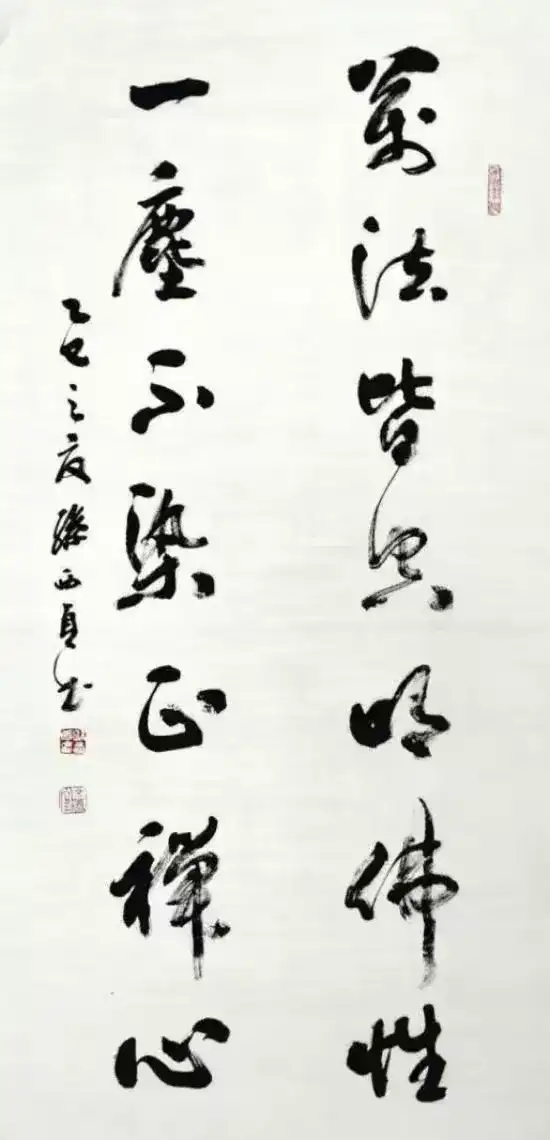 萬法皆空明佛性
一塵不染正禪心
乙巳之夏 西貞书